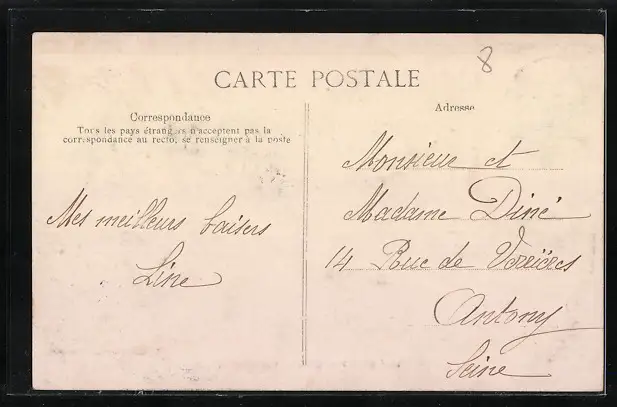 8
CARTE POSTALE
Correspondance
Tous les pays étrangers n'acceptent pas la
correspondance au recto, se renseigner à la poste
Mes meilleurs baisers
Line
Adresse
Monsieur et
Madame Diné
14 Rue de Verrières
Antony
Seine